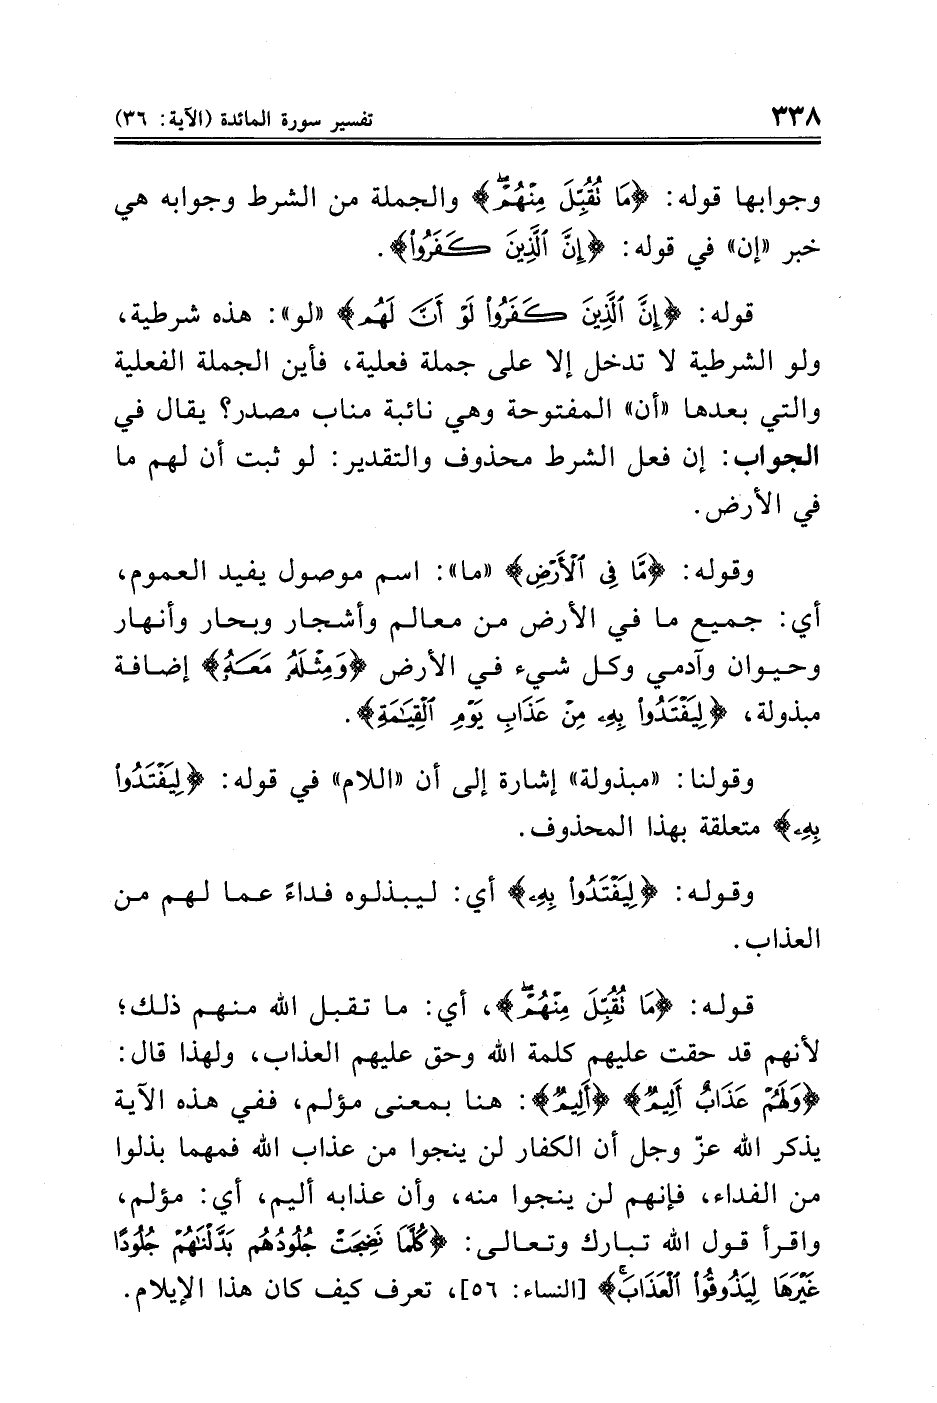 ٣٣٨
تفسير سورة المائدة (الآية: ٣٦)
وجوابها قوله: ﴿مَا تُقُبِّلَ مِنْهُمْ ۖ﴾ والجملة من الشرط وجوابه هي
خبر «إن» في قوله: ﴿إِنَّ ٱلَّذِينَ كَفَرُوا۟﴾.
قوله: ﴿إِنَّ ٱلَّذِينَ كَفَرُوا۟ لَوْ أَنَّ لَهُم﴾ «لو»: هذه شرطية،
ولو الشرطية لا تدخل إلا على جملة فعلية، فأين الجملة الفعلية
والتي بعدها «أن» المفتوحة وهي نائبة مناب مصدر؟ يقال في
الجواب: إن فعل الشرط محذوف والتقدير: لو ثبت أن لهم ما
في الأرض.
وقوله: ﴿مَّا فِى ٱلْأَرْضِ﴾ «ما»: اسم موصول يفيد العموم،
أي: جميع ما في الأرض من معالم وأشجار وبحار وأنهار
وحيوان وآدمي وكل شيء في الأرض ﴿وَمِثْلَهُۥ مَعَهُۥ﴾ إضافة
مبذولة، ﴿لِيَفْتَدُوا۟ بِهِۦ مِنْ عَذَابِ يَوْمِ ٱلْقِيَٰمَةِ﴾.
وقولنا: «مبذولة» إشارة إلى أن «اللام» في قوله: ﴿لِيَفْتَدُوا۟
بِهِۦ﴾ متعلقة بهذا المحذوف.
وقوله: ﴿لِيَفْتَدُوا۟ بِهِۦ﴾ أي: ليبذلوه فداءً عما لهم من
العذاب.
قوله: ﴿مَا تُقُبِّلَ مِنْهُمْ ۖ﴾، أي: ما تقبل الله منهم ذلك؛
لأنهم قد حقت عليهم كلمة الله وحق عليهم العذاب، ولهذا قال:
﴿وَلَهُمْ عَذَابٌ أَلِيمٌ﴾ ﴿أَلِيمٌ﴾: هنا بمعنى مؤلم، ففي هذه الآية
يذكر الله عزّ وجل أن الكفار لن ينجوا من عذاب الله فمهما بذلوا
من الفداء، فإنهم لن ينجوا منه، وأن عذابه أليم، أي: مؤلم،
واقرأ قول الله تبارك وتعالى: ﴿كُلَّمَا نَضِجَتْ جُلُودُهُم بَدَّلْنَٰهُمْ جُلُودًا
غَيْرَهَا لِيَذُوقُوا۟ ٱلْعَذَابَ ۗ﴾ [النساء: ٥٦]، تعرف كيف كان هذا الإيلام.